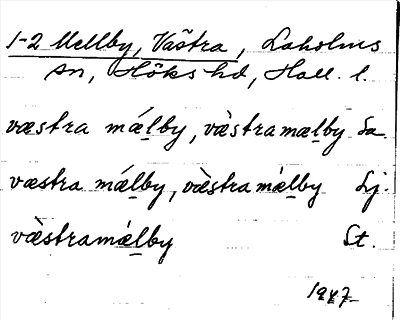 1-2 Mellby, Västra, Laholms
sn, Höks hd, Hall. l.
væstra mǽl̲by, væ̀stramæl̲by Sa.
væstra mǽl̲by, væ̀stramǽl̲by Lj.
væ̀stramǽl̲by St.
1947